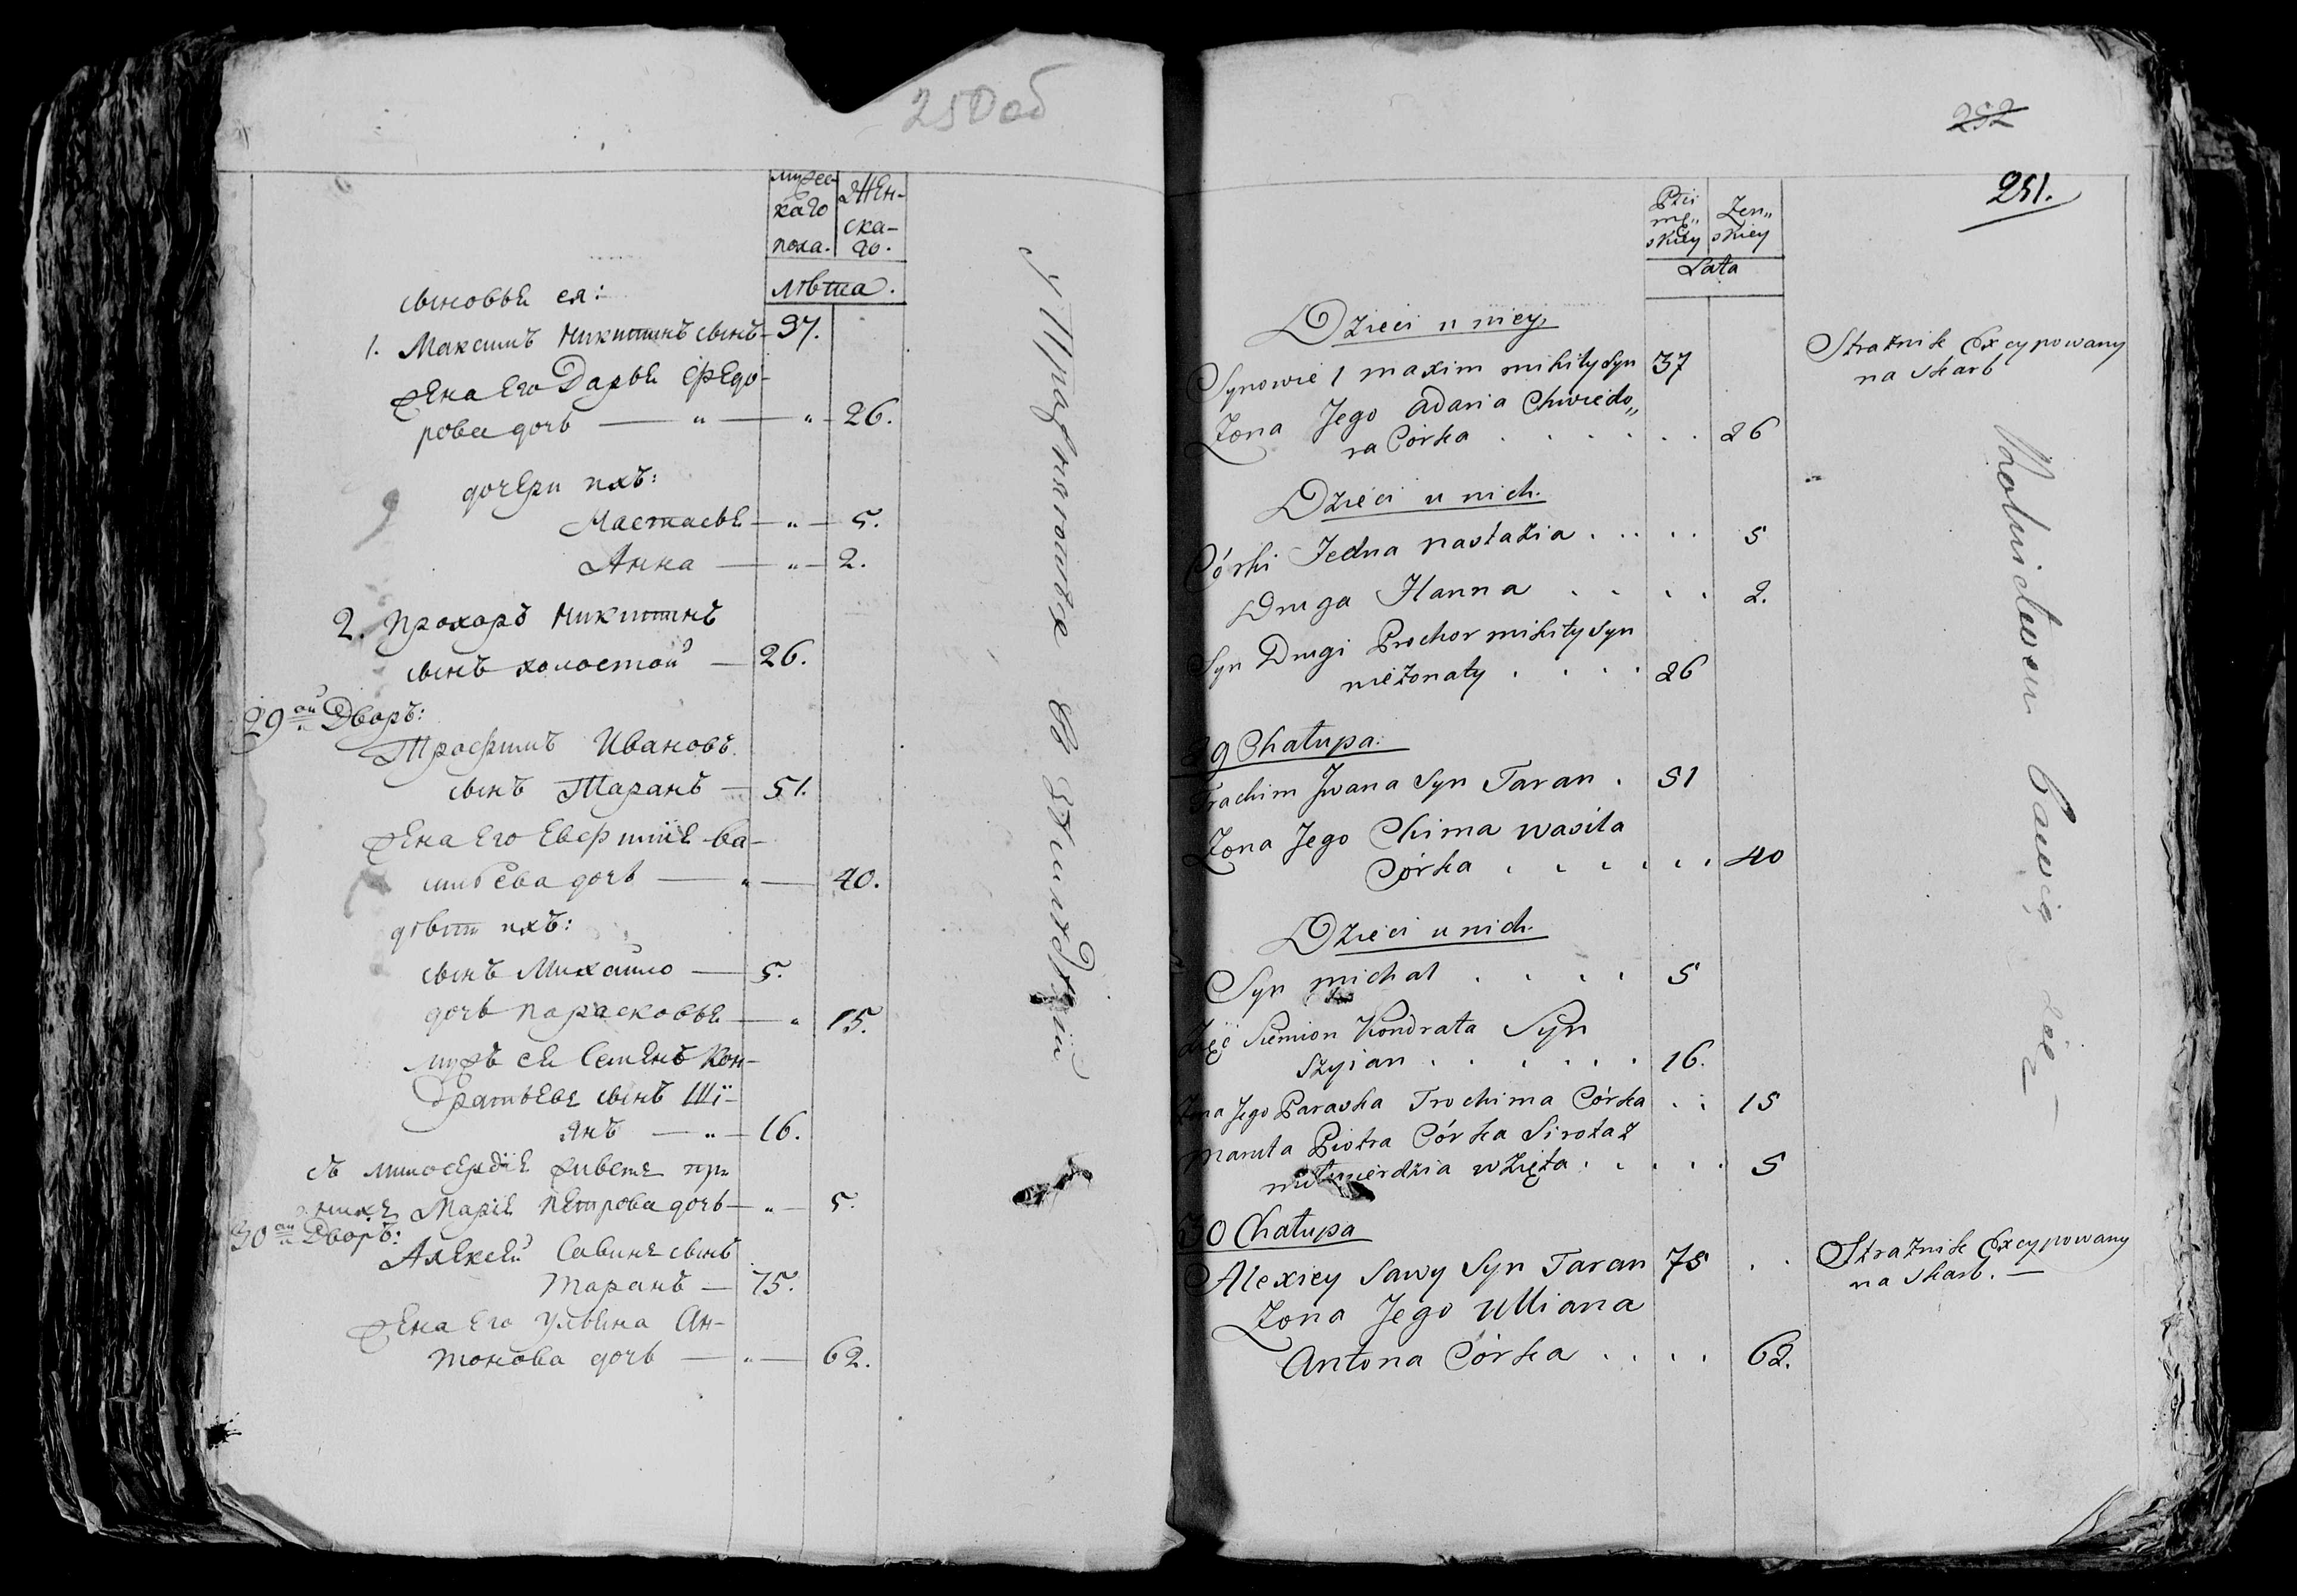 250 об
мужес-
каго
пола.
Жен-
ска-
го.
лѣта.
сыновья ея:
1. Максимъ Никитинъ сынъ — 37.
жена его Дарья Ѳедо-
рова дочь — " — " — 26.
дочери ихъ:
Настасья — " — 5.
Анна — " — 2.
2. Прохоръ Никитинъ
сынъ холостой — 26.
29ый Дворъ:
Трофимъ Ивановъ
сынъ Таранъ — 51.
жена его Евфимія Ва-
сильева дочь — " — 40.
дѣти ихъ:
сынъ Михайло — 5.
дочь Парасковья — " 15.
мужъ ея Семенъ Кон-
дратьевъ сынъ Ші-
янъ — " — 16.
съ милосердія живетъ при
нихъ Марія Петрова дочь — " — 5.
30ый Дворъ:
Алексей Савинъ сынъ
Таранъ — 75.
жена его Ульяна Ан-
тонова дочь — " — 62.
252
251.
Płci
mę„
skiey
Żen„
skiey
Lata
Dzieci u niey
Synowie 1 maxim mikity Syn 37
Strażnik Excypowany
na skarb
Żona Jego adaria Chwiedo„
ra Córka . . . . . . 26
Dzieci u nich.
Córki Jedna nastazia . . . . 5
Druga Hanna . . . . 2.
Syn Drugi Prochor mikity Syn
nieżonaty . . . . 26
29 Chałupa.
Trachim Jwana Syn Taran . 51
Żona Jego Chima wasila
Córka . . . . . . 40
Dzieci u nich.
Syn michał . . . . 5
Zięć Siemion Kondrata Syn
Szyian . . . . . . 16.
Żona Jego Paraska Trochima Córka . . 15
Maruta Piotra Córka Sirota z
miłosierdzia wzięta . . . . . 5
30 Chałupa
Alexiey Sawy Syn Taran 75 . .
Strażnik Excypowany
na skarb. —
Żona Jego Ulliana
Antona Córka . . . . 62.